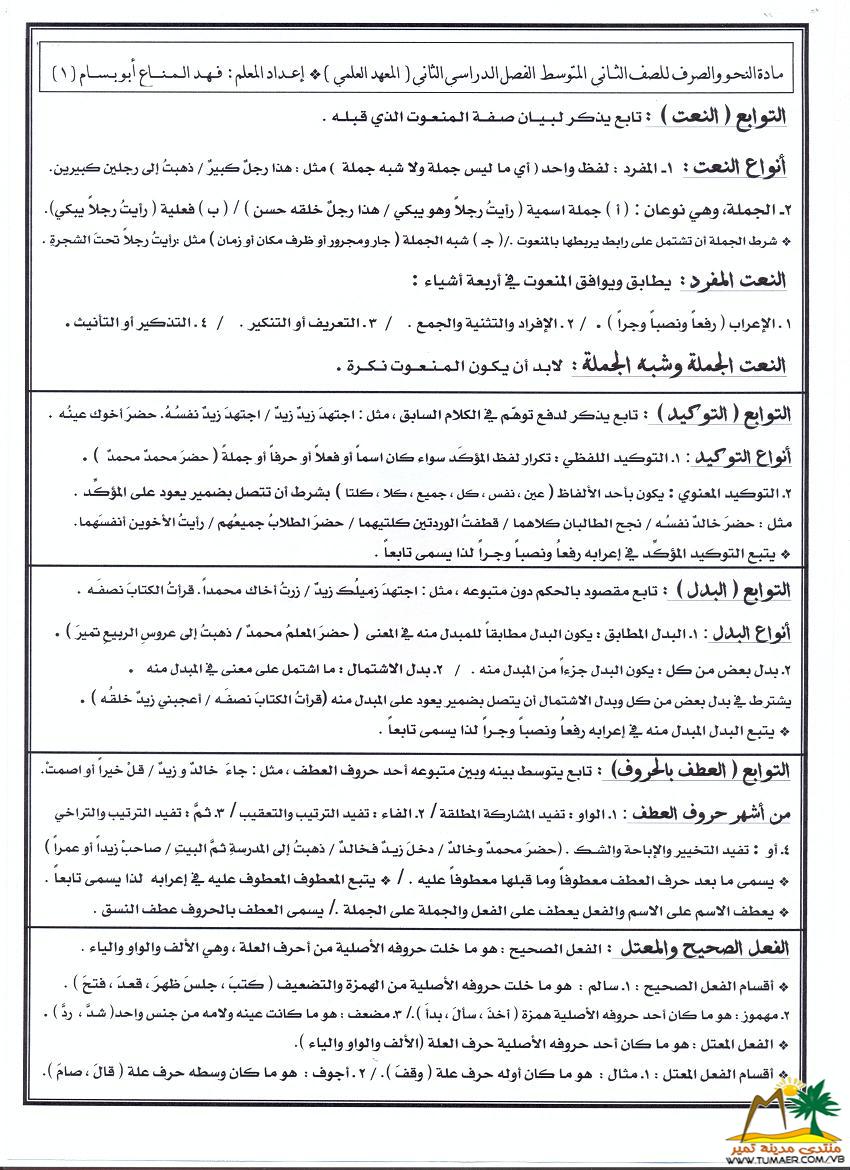 مادة النحو والصرف للصف الثاني المتوسط الفصل الدراسي الثاني ( المعهد العلمي ) ❖ إعداد المعلم : فهد المناع أبو بسام (١)
التوابع ( النعت ) : تابع يذكر لبيان صفة المنعوت الذي قبله .
أنواع النعت : ١ـ المفرد : لفظ واحد ( أي ما ليس جملة ولا شبه جملة ) مثل : هذا رجلٌ كبيرٌ / ذهبتُ إلى رجلين كبيرين.
٢ـ الجملة، وهي نوعان : ( أ ) جملة اسمية ( رأيتُ رجلاً وهو يبكي / هذا رجلٌ خلقه حسن ) / ( ب ) فعلية ( رأيتُ رجلاً يبكي).
❖ شرط الجملة أن تشتمل على رابط يربطها بالمنعوت ./( جـ ) شبه الجملة ( جار ومجرور أو ظرف مكان أو زمان ) مثل :رأيتُ رجلاً تحتَ الشجرةِ .
النعت المفرد : يطابق ويوافق المنعوت في أربعة أشياء :
١. الإعراب ( رفعاً ونصباً وجراً ) . / ٢. الإفراد والتثنية والجمع . / ٣. التعريف أو التنكير . / ٤. التذكير أو التأنيث .
النعت الجملة وشبه الجملة : لابد أن يكون المنعوت نكرة .
التوابع ( التوكيد ) : تابع يذكر لدفع توهّم في الكلام السابق ، مثل : اجتهدَ زيدٌ زيدٌ / اجتهدَ زيدٌ نفسُهُ. حضرَ أخوك عينُه .
أنواع التوكيد : ١. التوكيد اللفظي : تكرار لفظ المؤكَد سواء كان اسماً أو فعلاً أو حرفاً أو جملةً ( حضرَ محمدٌ محمدٌ ) .
٢. التوكيد المعنوي : يكون بأحد الألفاظ ( عين ، نفس ، كل ، جميع ، كلا ، كلتا ) بشرط أن تتصل بضمير يعود على المؤكّد .
مثل : حضرَ خالدٌ نفسُه / نجح الطالبان كلاهما / قطفتُ الوردتين كلتيهما / حضرَ الطلابُ جميعُهم / رأيتُ الأخوين أنفسَهما.
❖ يتبع التوكيد المؤكَّد في إعرابه رفعاً ونصباً وجراً لذا يسمى تابعاً .
التوابع ( البدل ) : تابع مقصود بالحكم دون متبوعه ، مثل : اجتهدَ زميلُك زيدٌ / زرتُ أخاك محمداً. قرأتُ الكتابَ نصفَه .
أنواع البدل : ١. البدل المطابق : يكون البدل مطابقاً للمبدل منه في المعنى ( حضرَ المعلمُ محمدٌ / ذهبتُ إلى عروسِ الربيعِ تميرَ ) .
٢. بدل بعض من كل : يكون البدل جزءاً من المبدل منه . / ٢. بدل الاشتمال : ما اشتمل على معنى في المبدل منه .
يشترط في بدل بعض من كل وبدل الاشتمال أن يتصل بضمير يعود على المبدل منه (قرأتُ الكتابَ نصفَه / أعجبني زيدٌ خلقُه ) .
❖ يتبع البدل المبدل منه في إعرابه رفعاً ونصباً وجراً لذا يسمى تابعاً .
التوابع ( العطف بالحروف) : تابع يتوسط بينه وبين متبوعه أحد حروف العطف ، مثل : جاءَ خالدٌ و زيدٌ / قلْ خيراً أو اصمتْ.
من أشهر حروف العطف : ١. الواو : تفيد المشاركة المطلقة / ٢. الفاء : تفيد الترتيب والتعقيب / ٣. ثمَّ : تفيد الترتيب والتراخي
٤. أو : تفيد التخيير والإباحة والشك . (حضرَ محمدٌ وخالدٌ / دخلَ زيدٌ فخالدٌ / ذهبتُ إلى المدرسةِ ثمَّ البيتِ / صاحبْ زيداً أو عمراً )
❖ يسمى ما بعد حرف العطف معطوفاً وما قبلها معطوفاً عليه . / ❖ يتبع المعطوف المعطوف عليه في إعرابه لذا يسمى تابعاً .
❖ يعطف الاسم على الاسم والفعل يعطف على الفعل والجملة على الجملة ./ يسمى العطف بالحروف عطف النسق .
الفعل الصحيح والمعتل : الفعل الصحيح : هو ما خلت حروفه الأصلية من أحرف العلة ، وهي الألف والواو والياء .
❖ أقسام الفعل الصحيح : ١. سالم : هو ما خلت حروفه الأصلية من الهمزة والتضعيف ( كتبَ ، جلسَ ظهرَ ، قعدَ ، فتحَ ) .
٢. مهموز : هو ما كان أحد حروفه الأصلية همزة ( أخذَ ، سألَ ، بدأَ )./ ٣. مضعف : هو ما كانت عينه ولامه من جنس واحد( شدَّ ، ردَّ ) .
❖ الفعل المعتل : هو ما كان أحد حروفه الأصلية حرف العلة (الألف والواو والياء ).
❖ أقسام الفعل المعتل : ١. مثال : هو ما كان أوله حرف علة ( وقفَ ). / ٢. أجوف : هو ما كان وسطه حرف علة ( قالَ ، صامَ ).
منتدى مدينة تمير
WWW.TUMAER.COM/VB